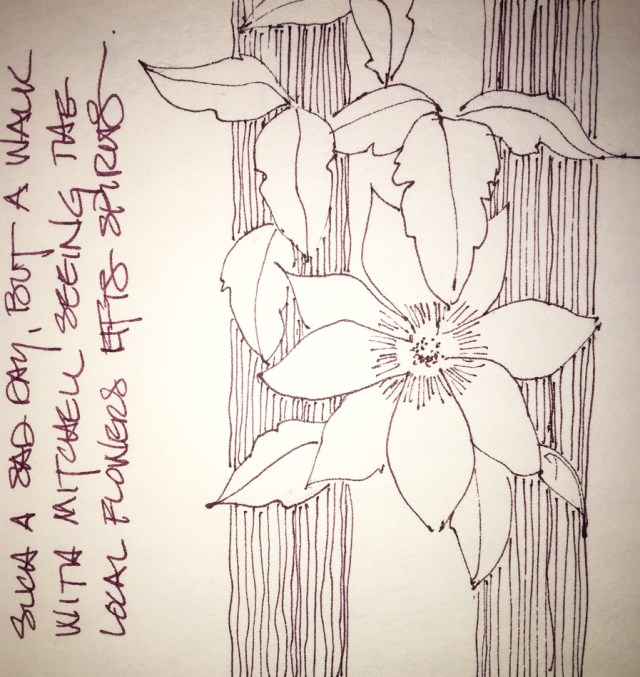 SUCH A SAD DAY, BUT A WALK
WITH MITCHELL SEEING THE
LOCAL FLOWERS LIFTS SPIRITS.